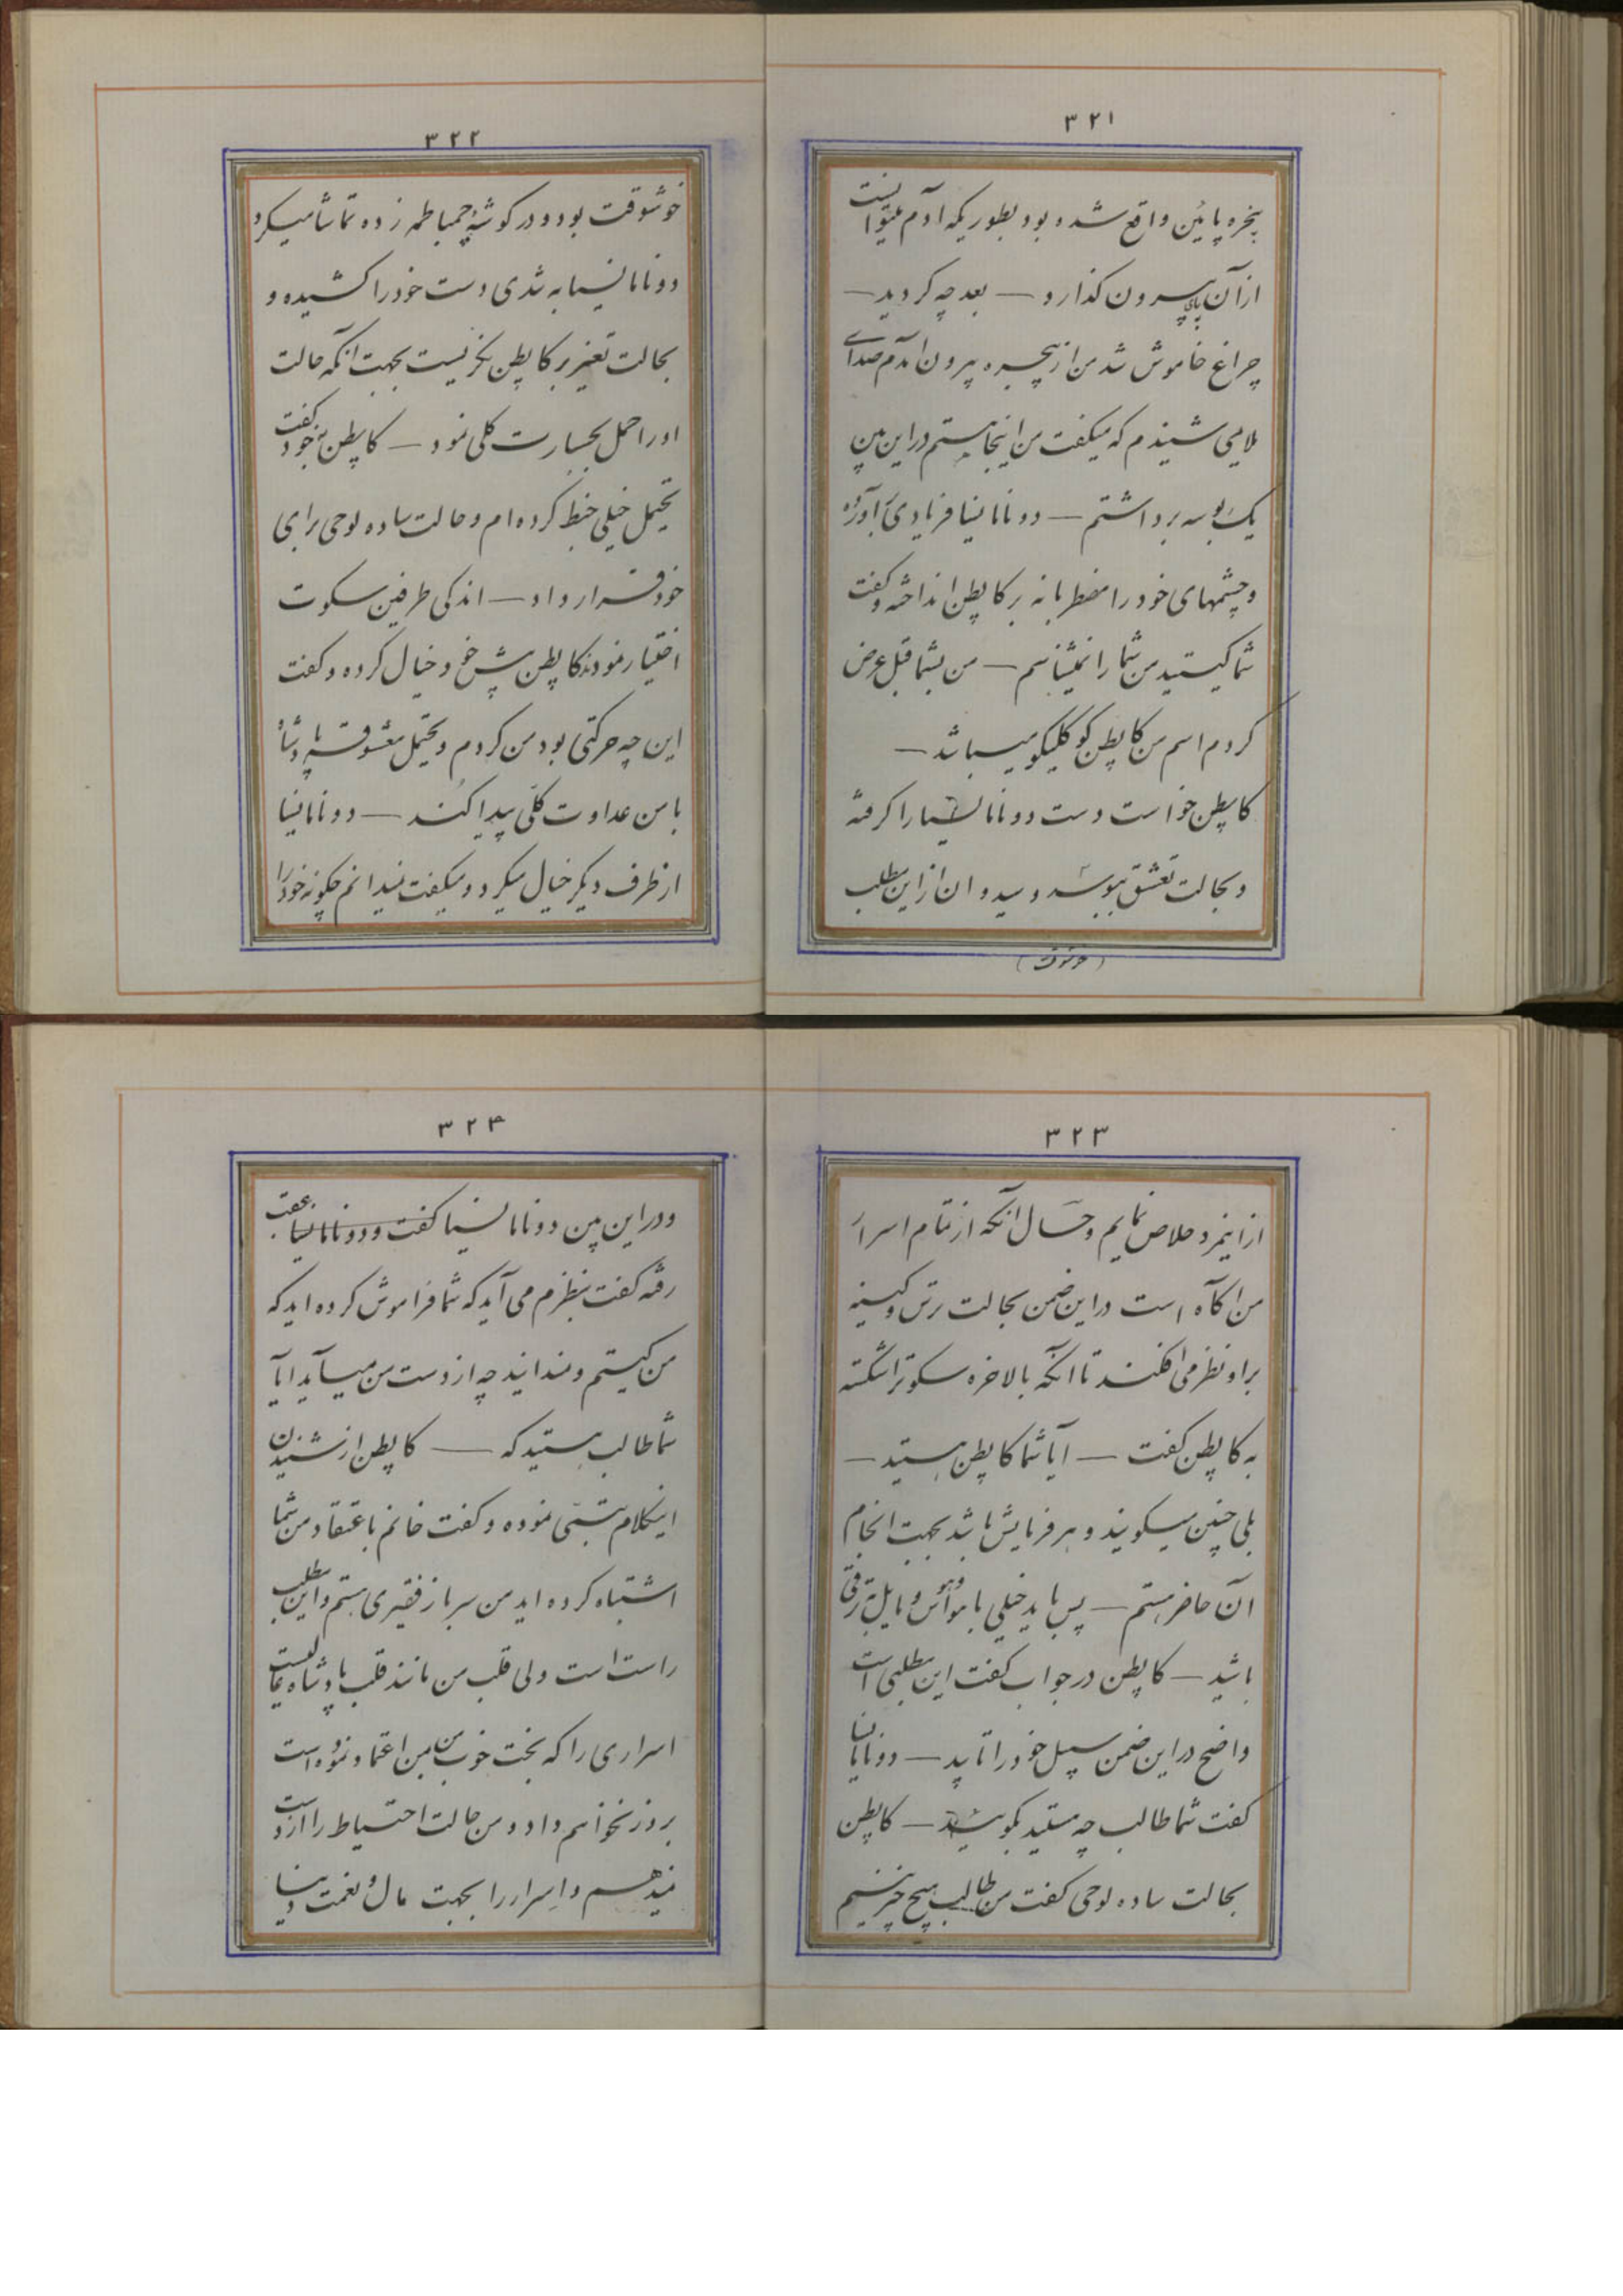 ۳۲۱
پنجره پایین واقع شده بود بطوریکه آدم میتوانست
از آن پای بیرون گذارد — بعد چه کردید —
چراغ خاموش شد من از پنجره بیرون آمدم صدای
ملایمی شنیدم که میگفت من اینجا هستم در این بین
یک بوسه برداشتم — دونانا نیسا فریادی برآورده
و چشمهای خود را مضطربانه بر کاپطن انداخته و گفت
شما کیستید من شما را نمیشناسم — من بشما قبل عرض
کردم اسم من کاپطن کوکلیکو میباشد —
کاپطن خواست دست دونانا نیسا را گرفته
و بحالت تعشق ببوسد و سیدوان از این مطلب
(خوشوقت)
۳۲۲
خوشوقت بود و در گوشه چمباطمه زده تماشا میکرد
دونانا نیسا به تندی دست خود را کشیده و
بحالت تغیر بر کاپطن نگریست بجهت آنکه حالت
او را حمل بجسارت کلی نمود — کاپطن بخود گفت
تحیمل خیلی خبط کرده ام و حالت ساده لوحی برای
خود قرار داد — اندکی طرفین سکوت
اختیار نمودند کاپطن پیش خود خیال کرده و گفت
این چه حرکتی بود من کردم و یحتمل معشوقه پادشاه
با من عداوت کلی پیدا کند — دونانا نیسا
از طرف دیگر خیال میکرد و میگفت نمیدانم چگونه خود را
۳۲۳
از اینمرد خلاص نمایم و حال آنکه از تمام اسرار
من آگاه است در این ضمن بحالت ترس و کینه
بر او نظر می افکند تا آنکه بالاخره سکوت را شکسته
به کاپطن گفت — آیا شما کاپطن هستید —
بلی چنین میگویند و هر فرمایش باشد بجهت انجام
آن حاضر هستم — پس باید خیلی با هوش و مایل ترقی
باشید — کاپطن در جواب گفت این مطلبی است
واضح در این ضمن سبیل خود را تابید — دونانا نیسا
گفت شما طالب چه هستید بگوئید — کاپطن
بحالت ساده لوحی گفت من طالب هیچ چیز نیستم
۳۲۴
و در این بین دونانا نیسا گفت و دونانا نیسا بعقب
رفته گفت بنظرم می آید که شما فراموش کرده اید که
من کیستم و نمیدانید چه از دست من میآید آیا
شما طالب هستید که — کاپطن از شنیدن
اینکلام تبسمی نموده و گفت خانم باعتقاد من شما
اشتباه کرده اید من سرباز فقیری هستم و این مطلب
راست است ولی قلب من مانند قلب پادشاه
اسراری را که بخت خوب من بمن اعتماد نموده است
بروز نخواهم داد و من حالت احتیاط را از دست
نمیدهم و اسرار را بجهت مال و نعمت دنیا